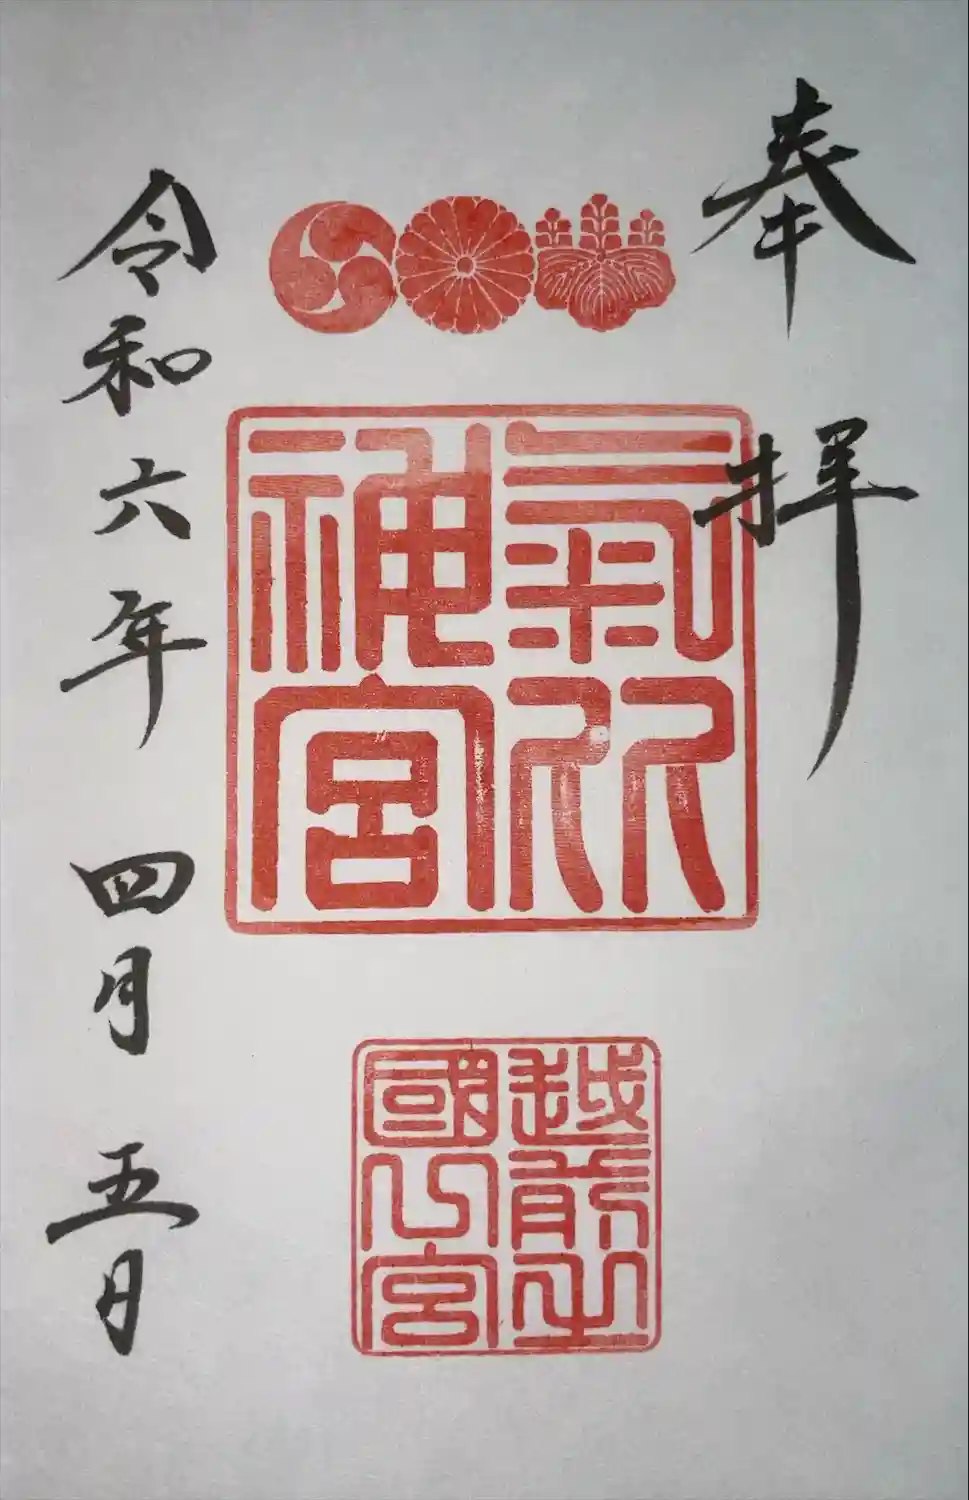 奉拝
氣比
神宮
越前之
國 宮
令和六年 四月 五日